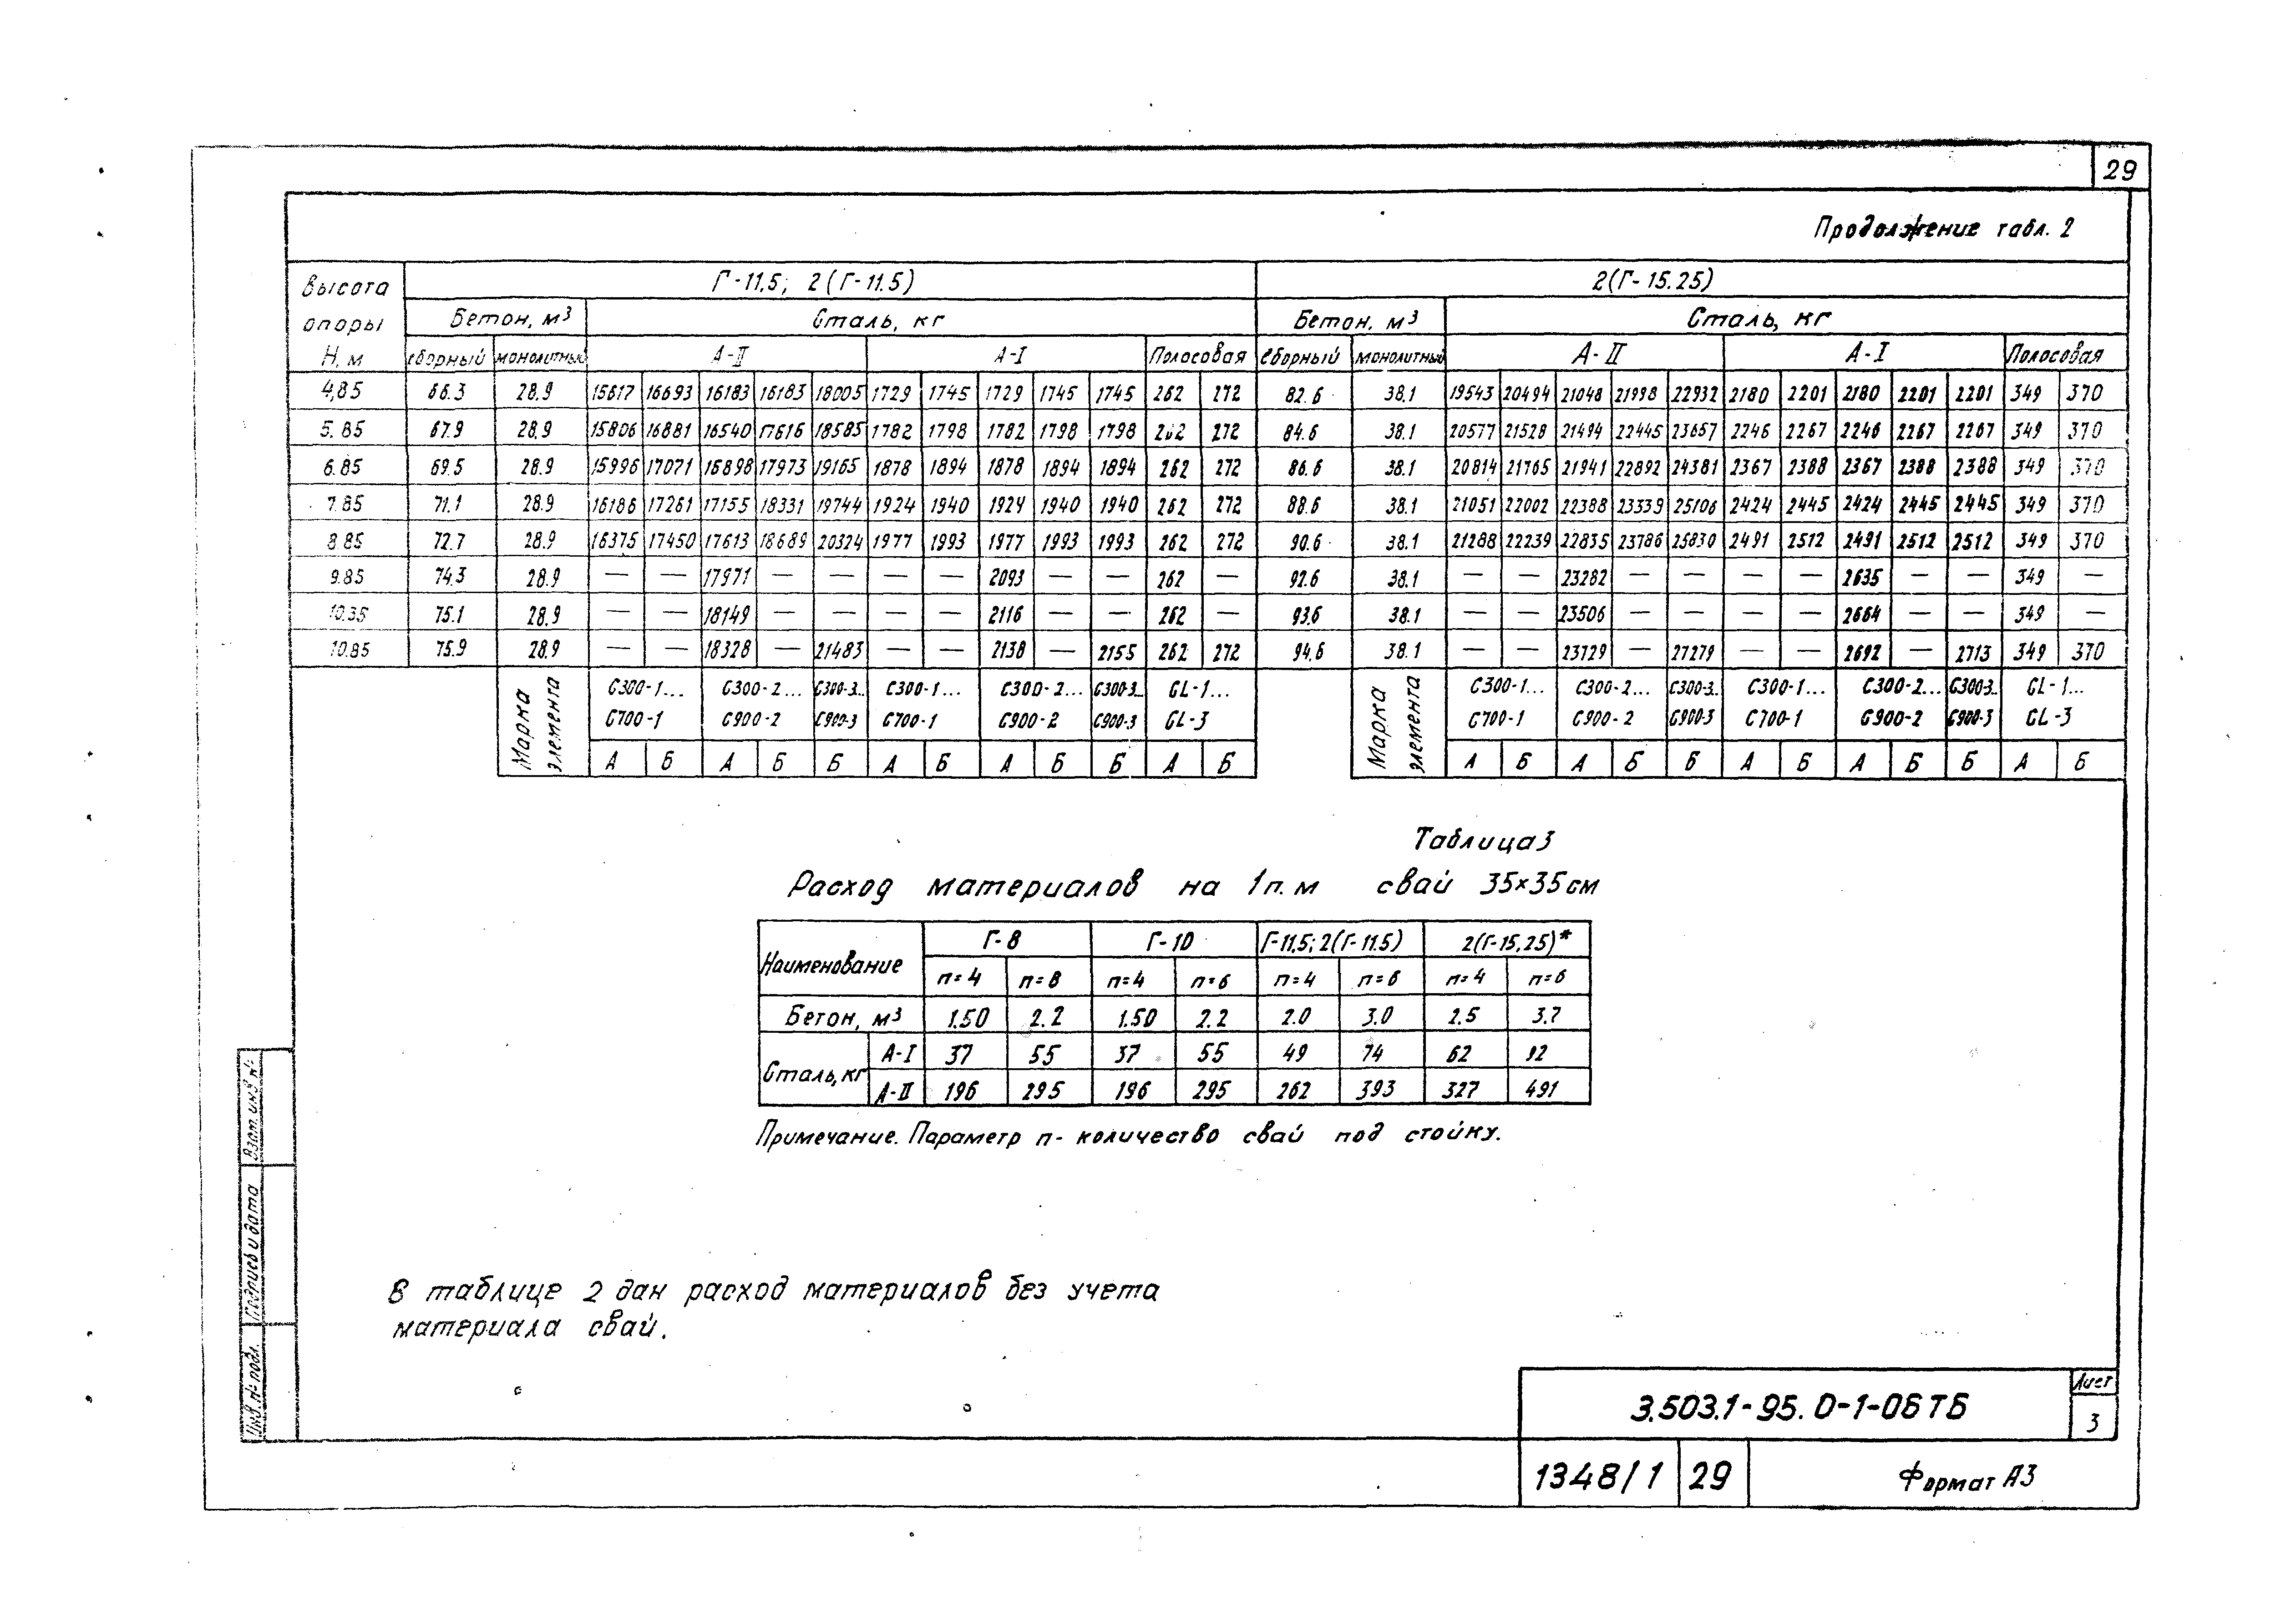 29
Продолжение табл. 2
Высота опоры Н, м | Г-11,5; 2(Г-11.5) | 2(Г-15.25)
Бетон, м³ | Сталь, кг | Бетон, м³ | Сталь, кг
сборный | монолитный | А-II | А-I | Полосовая | сборный | монолитный | А-II | А-I | Полосовая
4,85 | 66.3 | 28.9 | 15617 | 16693 | 16183 | 16183 | 18005 | 1729 | 1745 | 1729 | 1745 | 1745 | 262 | 272 | 82.6 | 38.1 | 19543 | 20494 | 21048 | 21998 | 22932 | 2180 | 2201 | 2180 | 2201 | 2201 | 349 | 370
5.85 | 67.9 | 28.9 | 15806 | 16881 | 16540 | 17616 | 18585 | 1782 | 1798 | 1782 | 1798 | 1798 | 262 | 272 | 84.6 | 38.1 | 20577 | 21528 | 21494 | 22445 | 23657 | 2246 | 2267 | 2246 | 2267 | 2267 | 349 | 370
6.85 | 69.5 | 28.9 | 15996 | 17071 | 16898 | 17973 | 19165 | 1878 | 1894 | 1878 | 1894 | 1894 | 262 | 272 | 86.6 | 38.1 | 20814 | 21765 | 21941 | 22892 | 24381 | 2367 | 2388 | 2367 | 2388 | 2388 | 349 | 370
7.85 | 71.1 | 28.9 | 16186 | 17261 | 17155 | 18331 | 19744 | 1924 | 1940 | 1924 | 1940 | 1940 | 262 | 272 | 88.6 | 38.1 | 21051 | 22002 | 22388 | 23339 | 25106 | 2424 | 2445 | 2424 | 2445 | 2445 | 349 | 370
8.85 | 72.7 | 28.9 | 16375 | 17450 | 17613 | 18689 | 20324 | 1977 | 1993 | 1977 | 1993 | 1993 | 262 | 272 | 90.6 | 38.1 | 21288 | 22239 | 22835 | 23786 | 25830 | 2491 | 2512 | 2491 | 2512 | 2512 | 349 | 370
9.85 | 74.3 | 28.9 | — | — | 17971 | — | — | — | — | 2093 | — | — | 262 | — | 92.6 | 38.1 | — | — | 23282 | — | — | — | — | 2635 | — | — | 349 | —
10.35 | 75.1 | 28.9 | — | — | 18149 | — | — | — | — | 2116 | — | — | 262 | — | 93.6 | 38.1 | — | — | 23506 | — | — | — | — | 2664 | — | — | 349 | —
10.85 | 75.9 | 28.9 | — | — | 18328 | — | 21483 | — | — | 2138 | — | 2155 | 262 | 272 | 94.6 | 38.1 | — | — | 23729 | — | 27279 | — | — | 2692 | — | 2713 | 349 | 370
Марка элемента | С300-1... С700-1 | С300-2... С900-2 | С300-3.. С900-3 | С300-1... С700-1 | С300-2... С900-2 | С300-3.. С900-3 | СL-1... СL-3 | Марка элемента | С300-1... С700-1 | С300-2... С900-2 | С300-3.. С900-3 | С300-1... С700-1 | С300-2... С900-2 | С300-3.. С900-3 | СL-1... СL-3
А | Б | А | Б | Б | А | Б | А | Б | Б | А | Б | А | Б | А | Б | Б | А | Б | А | Б | Б | А | Б
Таблица 3
Расход материалов на 1 п. м свай 35×35 см
Наименование | Г-8 | Г-10 | Г-11,5; 2(Г-11.5) | 2(Г-15,25)*
п=4 | п=8 | п=4 | п=6 | п=4 | п=6 | п=4 | п=6
Бетон, м³ | 1.50 | 2.2 | 1.50 | 2.2 | 2.0 | 3.0 | 2.5 | 3.7
Сталь, кг | А-I | 37 | 55 | 37 | 55 | 49 | 74 | 62 | 92
А-II | 196 | 295 | 196 | 295 | 262 | 393 | 327 | 491
Примечание. Параметр п- количество свай под стойку.
В таблице 2 дан расход материалов без учета
материала свай.
Взам. инв. №
Подпись и дата
Инв. № подл.
3.503.1-95. 0-1-06 ТБ
Лист
3
1348/1 | 29
Формат А3